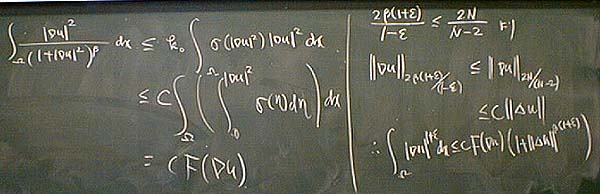 ∫_Ω |Du|² / (1+|Du|²)^β dx ≤ k₀ ∫_Ω σ(|Du|²)|Du|² dx
≤ C ∫_Ω ( ∫_0^{|Du|²} σ(η)dη ) dx
= C F(Du)
2β(1+ε) / (1-ε) ≤ 2N / (N-2)
‖Du‖_{2β(1+ε)/(1-ε)} ≤ ‖Du‖_{2N/(N-2)}
≤ C‖Δu‖
∴ ∫_Ω |Du|^{1+ε} dx ≤ C F(Du) (1+‖Δu‖^{β(1+ε)})